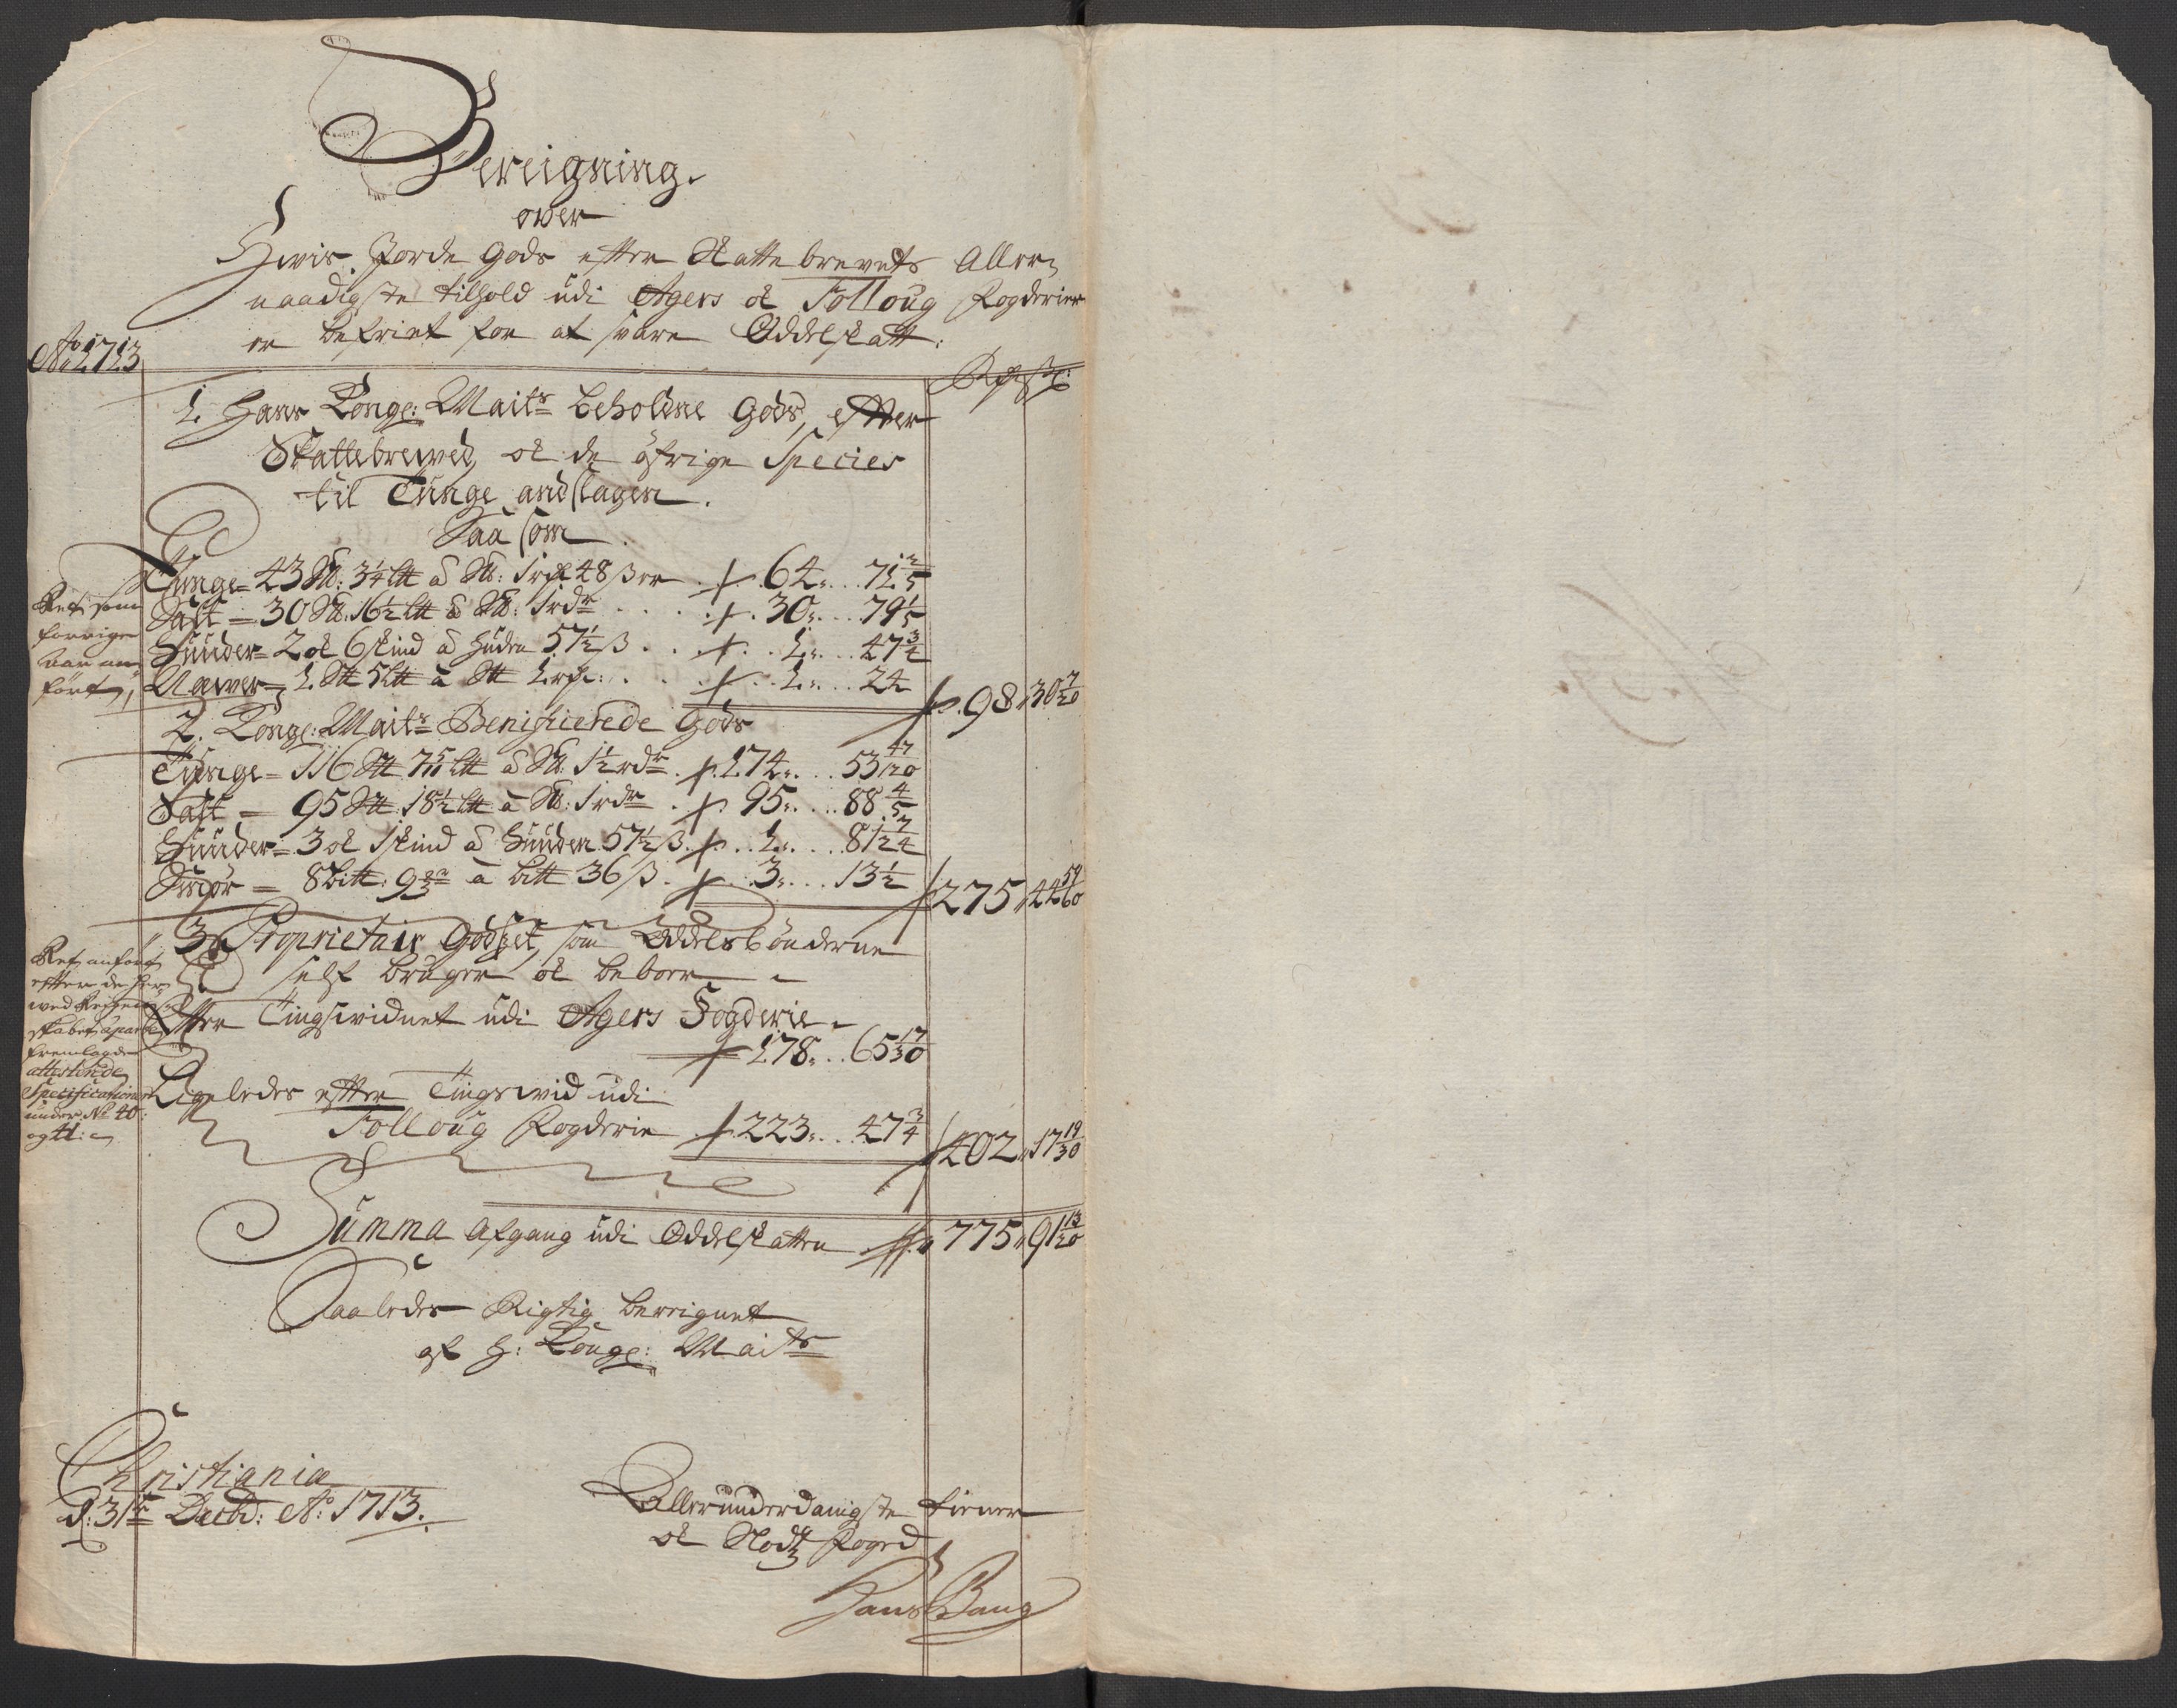 Bereigning.
over
Hvis Jorde Gods efter Skattebrevets Aller,,
naadigste tilhold udi Agers oc Folloug fogderier
er befriet for at svare Oddelskatt.
Ao 1713
1. Hans Konge: Maits beholdne Gods, efter
Skattebrewed, oc de öfrige Species
til Tunge andslagen.
Saa som
Tunge= 43 S℔: 3¼ l℔ à S℔: 1 rd 48 ß er 64„ 71 2/5
Salt = 30 S℔: 16½ l℔ à S℔: 1 rdr 30„ 79 1/5
Huuder= 2 oc 6 skind à Huden 57½ ß 1„ 47 3/4
Næwer= 1. S℔ 5 l℔ à S℔ 1 rd: 1„ 24
98„ 30 7/20
Ret som
forrige
aar an
ført,
2. Konge: Maits Benificerede Gods
Tunge = 116 S℔ 7 l℔ à S℔ 1½ rdr 174„ 53 47/120
Salt = 95 S℔: 18½ l℔ à S℔: 1 rdr 95„ 88 4/5
Huuder= 3 oc 1 skind à Huuden 57½ ß 1„ 81 7/24
Smör = 8 bitt: 9 à bitt 36 ß 3„ 13½
275„ 44 59/60
3. Proprietair Godset, som Oddelsbönderne
self bruger oc beboer
Efter Tingswidnet udi Agers Fogderie
178„ 65 17/30
Ligeledes efter Tingswid udi
Folloug fogderie 223„ 47 3/4
402„ 17 19/30
Ret anført
efter de her
wed Regen
skabet aparte
fremlagde
attesterede
Specificationer
under No 40:
og 41:
Summa Afgang udi Oddelskatten 775„ 91 13/20
Saaledes Rigtig bereignet
af H: Konge: Maits
Christiania
d: 31te Decbr: Ao: 1713.
Allerunderdanigste tiener
oc Foged
Hans Bang